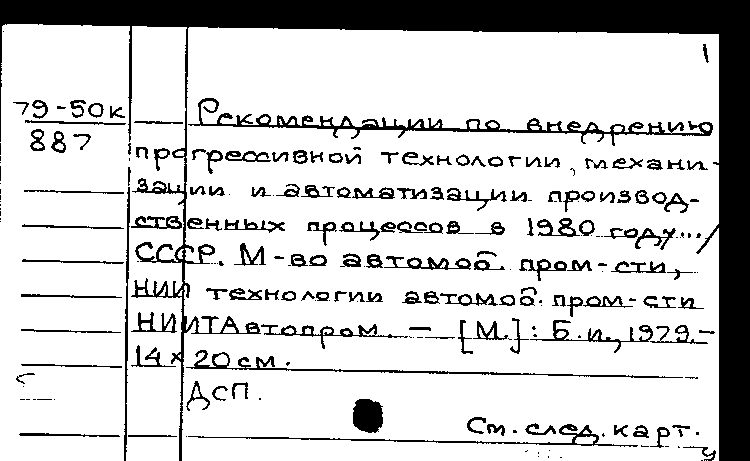 1
79-50к Рекомендации по внедрению
887
прогрессивной технологии, механи-
зации и автоматизации производ-
ственных процессов в 1980 году.../
СССР. М-во автомоб. пром-сти,
НИИ технологии автомоб. пром-сти
НИИТАвтопром. — [М.]: Б.и., 1979.-
14 x 20 см.
ДСП.
См. след. карт.